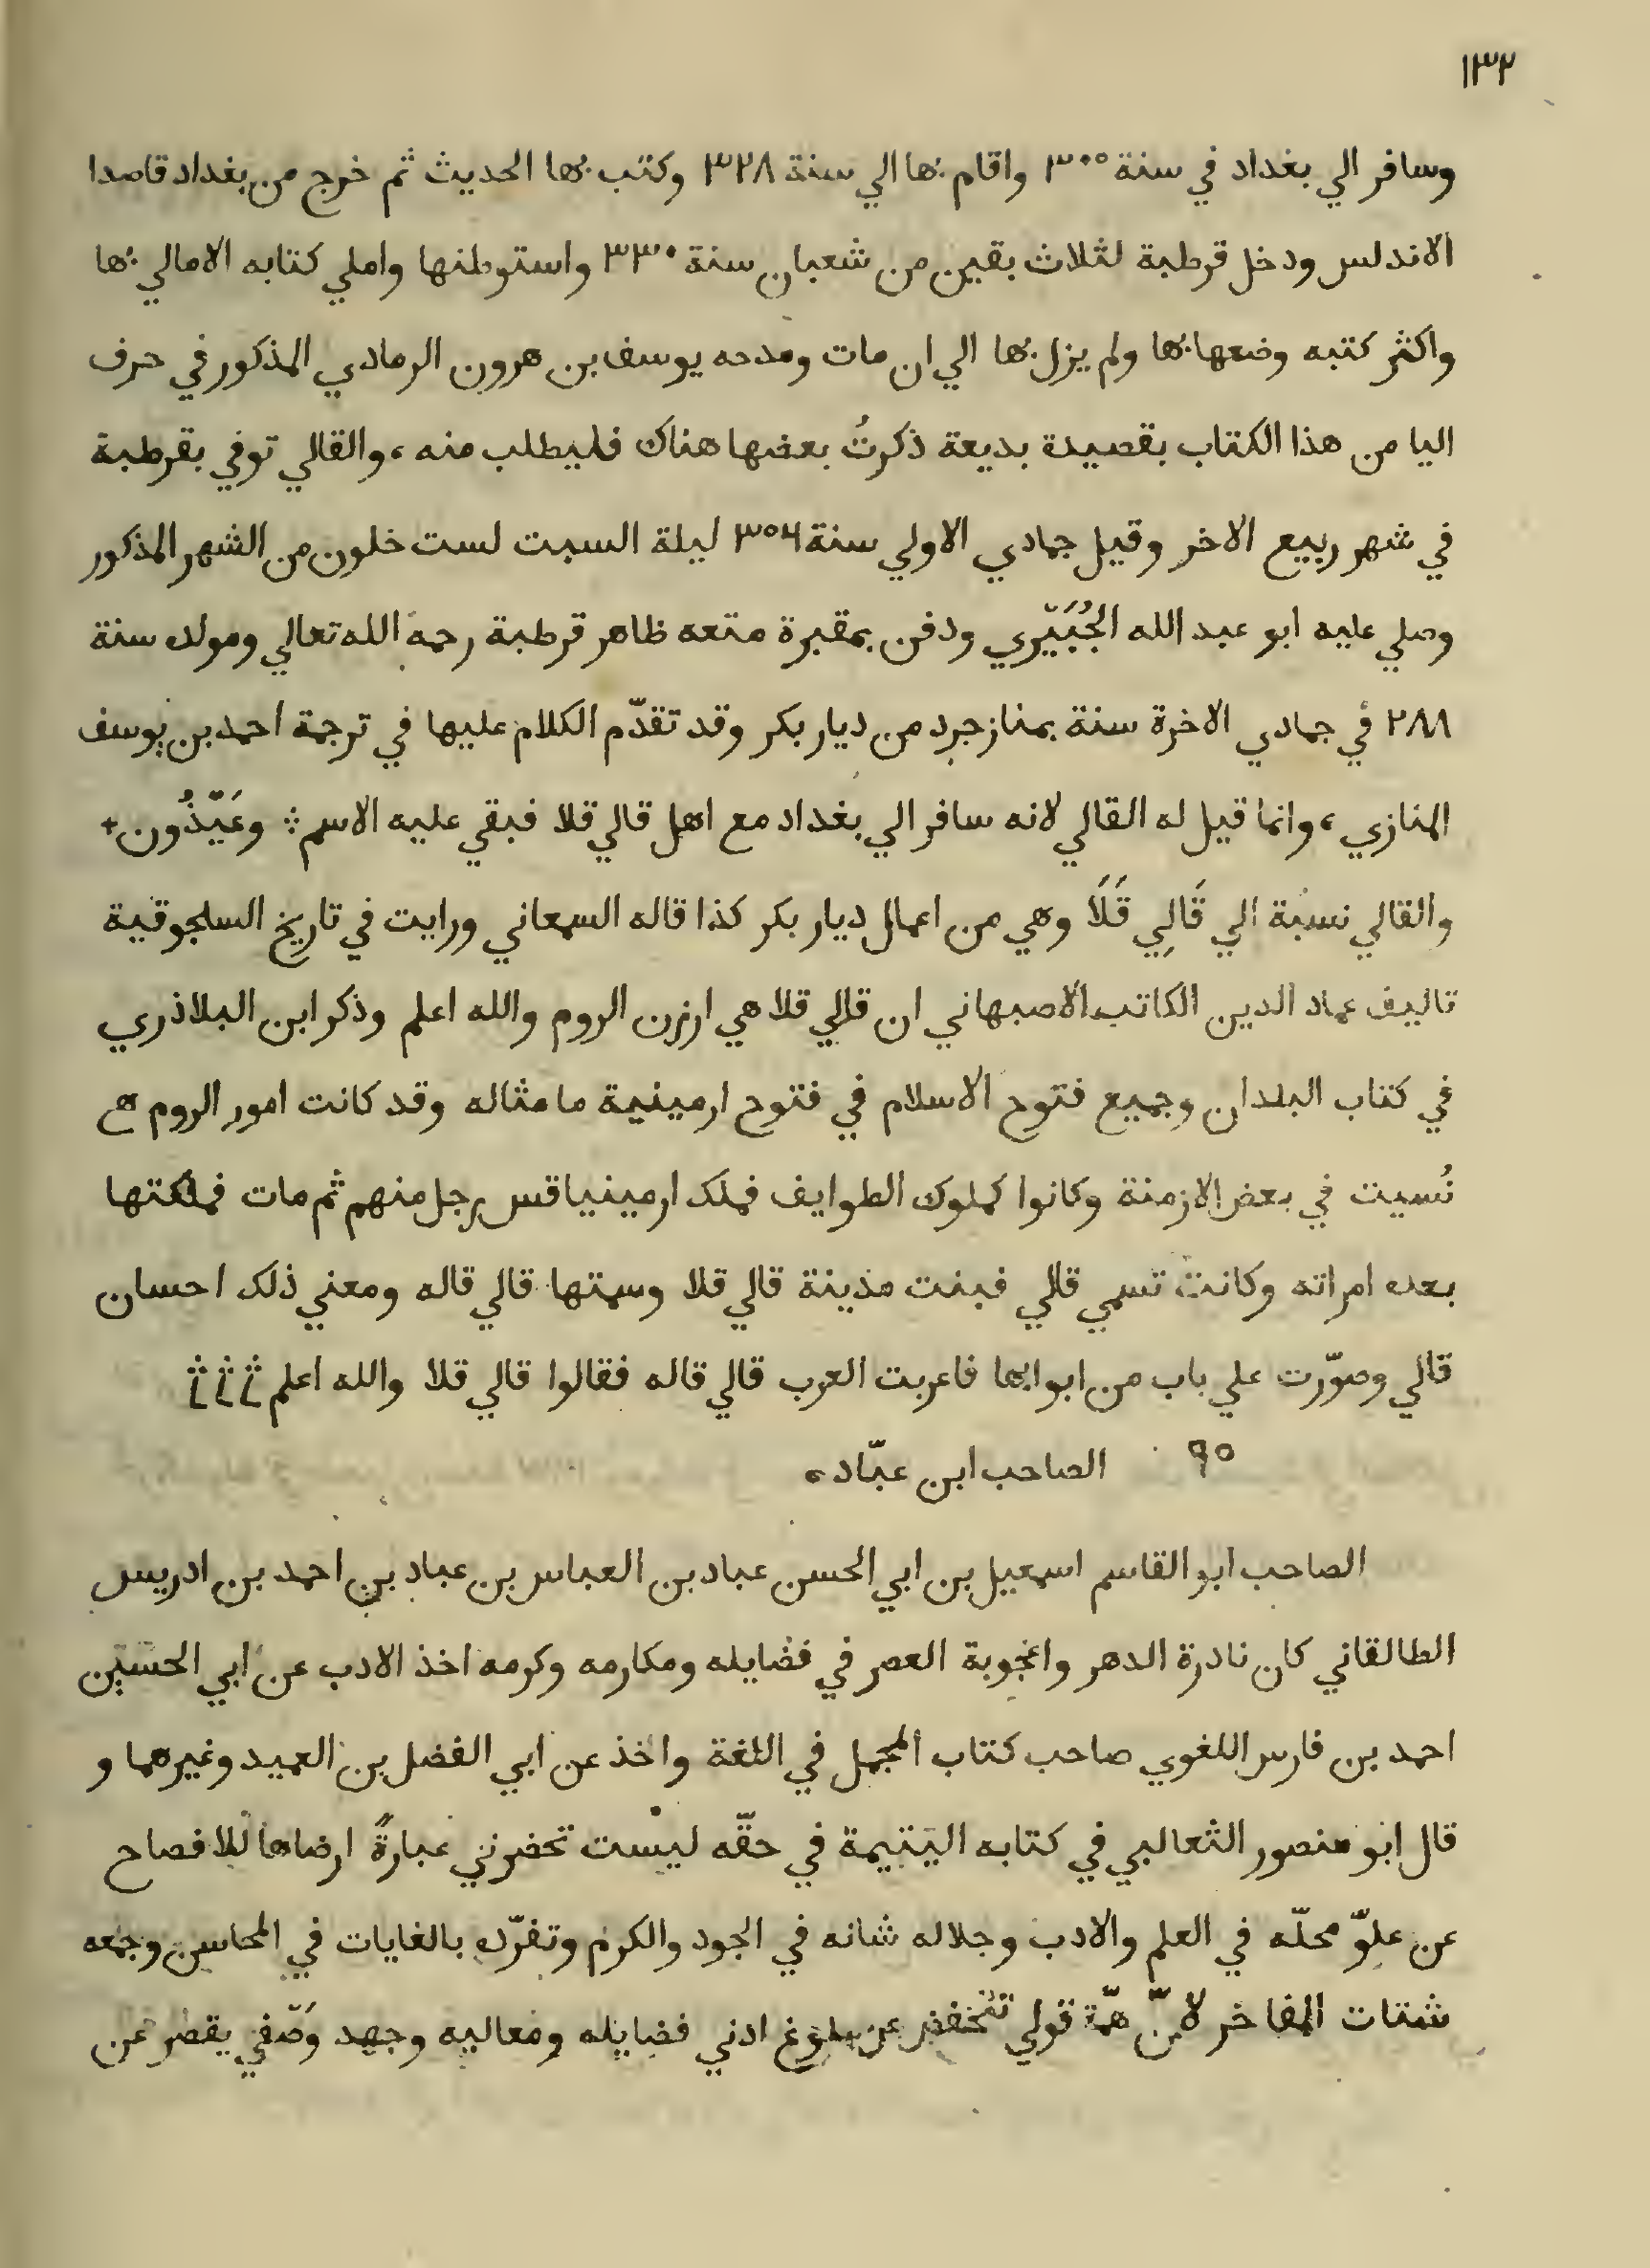 ١٣٢
وسافر الي بغداد في سنة ٣٠٥ واقام بها الي سنة ٣٢٨ وكتب بها الحديث ثم خرج من بغداد قاصدا
الاندلس ودخل قرطبة لثلاث بقين من شعبان سنة ٣٣٠ واستوطنها واملي كتابه الامالي بها
واكثر كتبه وضعها بها ولم يزل بها الي ان مات ومدحه يوسف بن هرون الرمادي المذكور في حرف
اليا من هذا الكتاب بقصيدة بديعة ذكرتُ بعضها هناك فليطلب منه ، والقالي توفي بقرطبة
في شهر ربيع الاخر وقيل جمادي الاولي سنة ٣٥٦ ليلة السبت لست خلون من الشهر المذكور
وصلي عليه ابو عبد الله الجُبَيّري ودفن بمقبرة متعه ظاهر قرطبة رحمه الله تعالي ومولده سنة
٢٨٨ في جمادي الاخرة سنة بمنازجرد من ديار بكر وقد تقدّم الكلام عليها في ترجمة احمد بن يوسف
المنازي ، وانما قيل له القالي لانه سافر الي بغداد مع اهل قالي قلا فبقي عليه الاسم ÷ وعَيّذُون +
والقالي نسبة الي قَالِي قَلَا وهي من اعمال ديار بكر كذا قاله السمعاني ورايت في تاريخ السلجوقية
تاليف عماد الدين الكاتب الاصبهاني ان قالي قلا هي ارزن الروم والله اعلم وذكر ابن البلاذري
في كتاب البلدان وجميع فتوح الاسلام في فتوح ارمينية ما مثاله وقد كانت امور الروم
نُسيت في بعض الازمنة وكانوا كملوك الطوايف فملك ارمينياقس رجل منهم ثم مات فملكتها
بعده امراته وكانت تسمي قالي فبنت مدينة قالي قلا وسمتها قالي قاله ومعني ذلك احسان
قالي وصوّرت علي باب من ابوابها فاعربت العرب قالي قاله فقالوا قالي قلا والله اعلم
٩٥ الصاحب ابن عبّاد ،
الصاحب ابو القاسم اسمعيل بن ابي الحسن عباد بن العباس بن عباد بن احمد بن ادريس
الطالقاني كان نادرة الدهر واعجوبة العصر في فضايله ومكارمه وكرمه اخذ الادب عن ابي الحسين
احمد بن فارس اللغوي صاحب كتاب المجمل في اللغة واخذ عن ابي الفضل بن العميد وغيرهما و
قال ابو منصور الثعالبي في كتابه اليتيمة في حقّه ليست تحضرني عبارةً ارضاها للافصاح
عن علوّ محلّه في العلم والادب وجلاله شانه في الجود والكرم وتفرّده بالغايات في المحاسن وجمعه
شتات المفاخر لانّ همّة قولي تنخفض عن بلوغ ادني فضايله ومعاليه وجهد وَصْفي يقصر عن